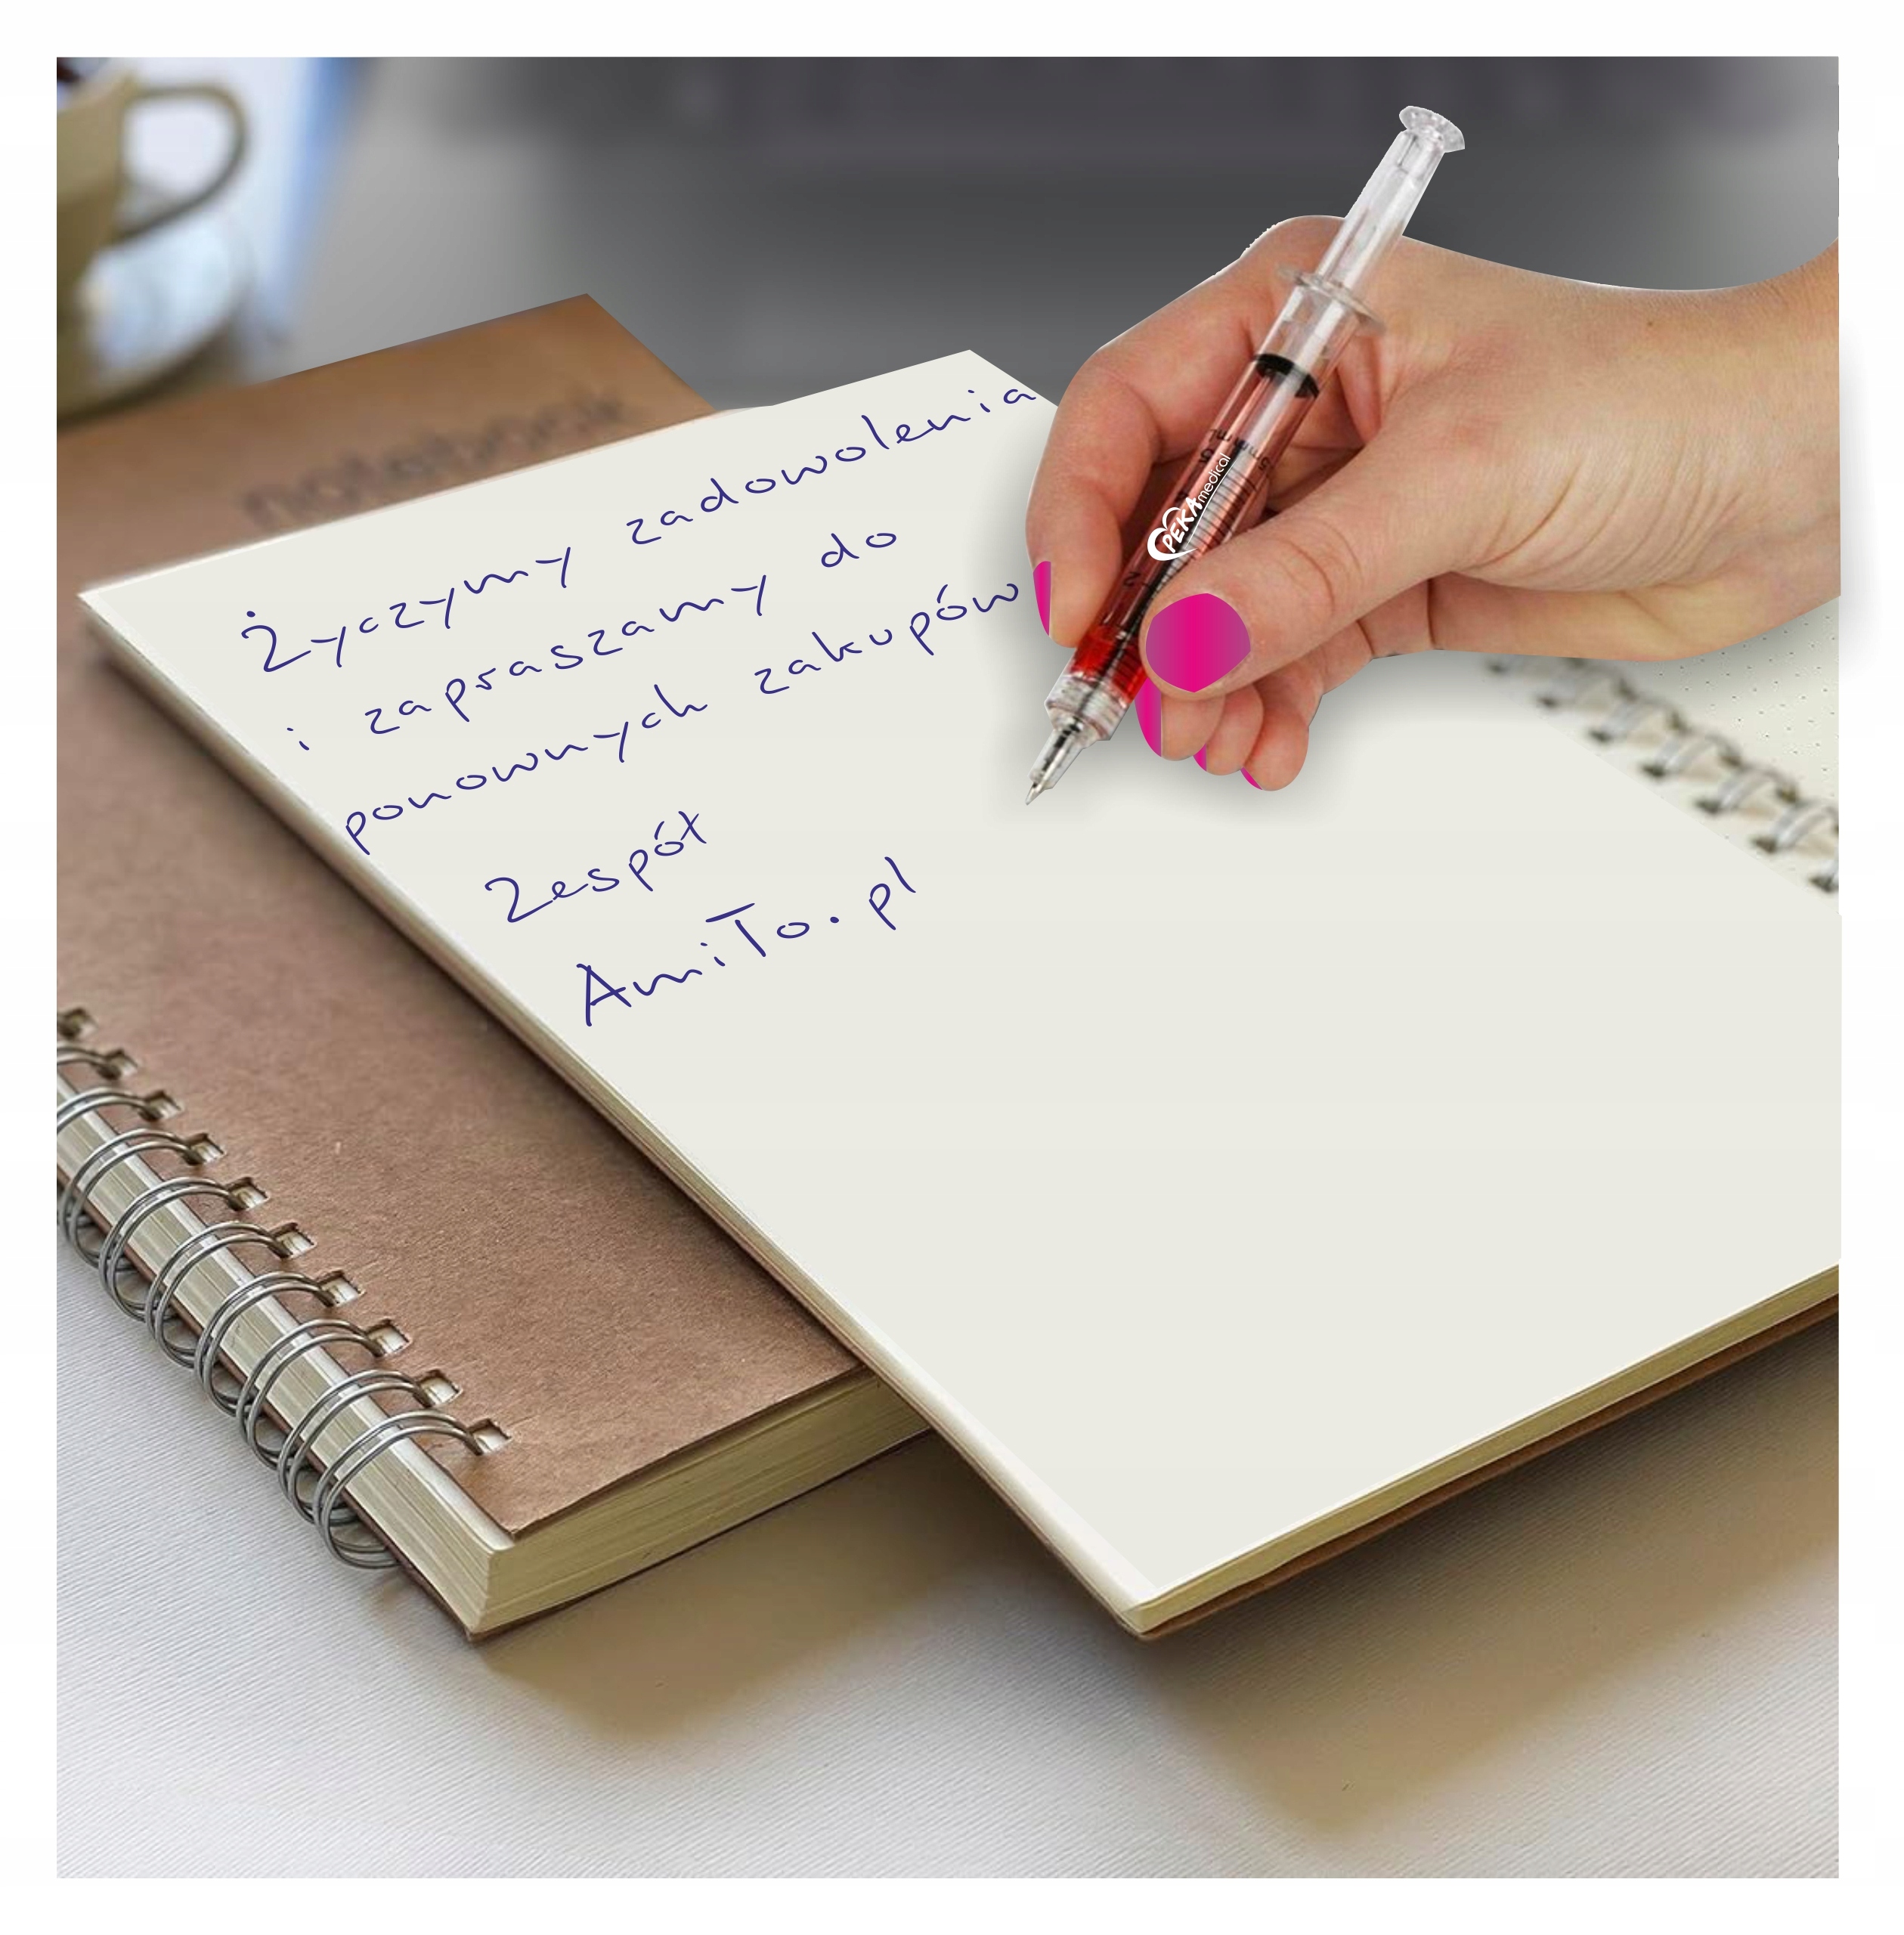 notebook
Życzymy zadowolenia
i zapraszamy do
ponownych zakupów
Zespół
AmiTo.pl
PEKA medical
5
2